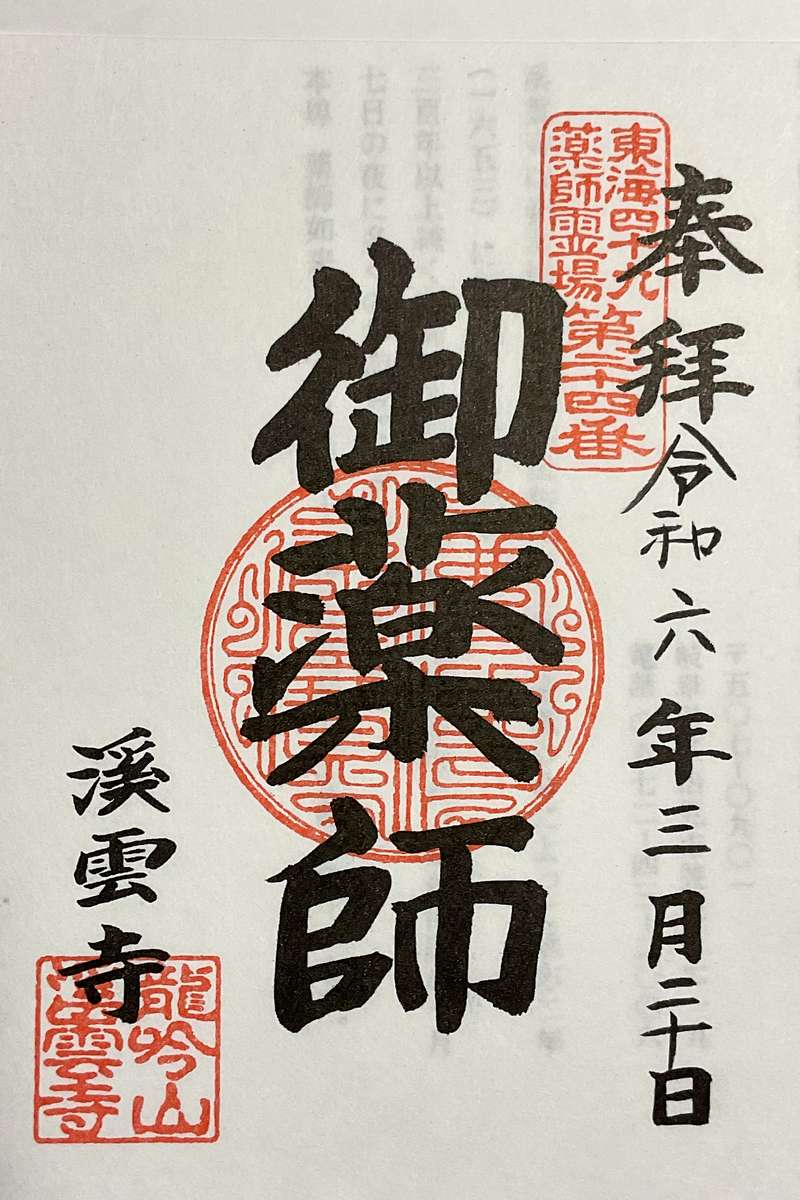 奉拝 令和六年三月二十日
東海四十九
薬師霊場第二十四番
御薬師
溪雲寺
龍吟山
溪雲寺